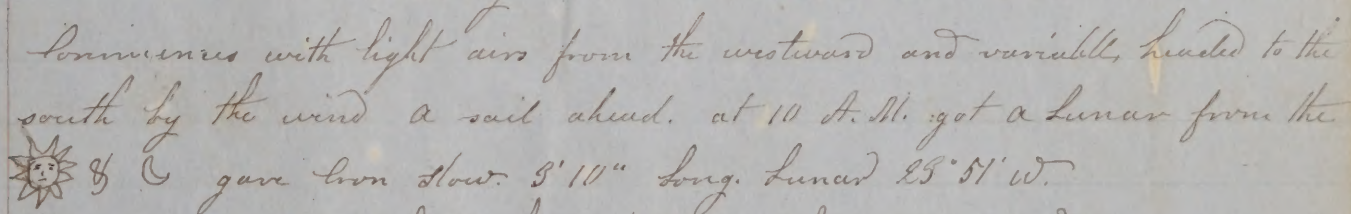 Commences with light airs from the westward and variable, headed to the
south by the wind a sail ahead. at 10 A.M. got a Lunar from the
☀ & ☾ gave Cron slow. 3' 10" Long. Lunar 23° 51' W.